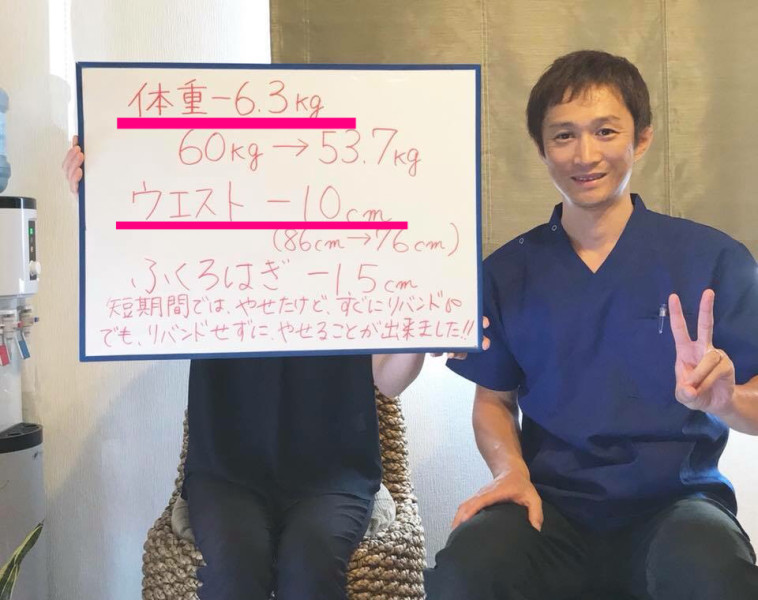 体重-6.3kg
60kg→53.7kg
ウエスト -10cm
(86cm→76cm)
ふくらはぎ -1.5cm
短期間では、やせたけど、すぐにリバンド
でも、リバンドせずに、やせることが出来ました!!